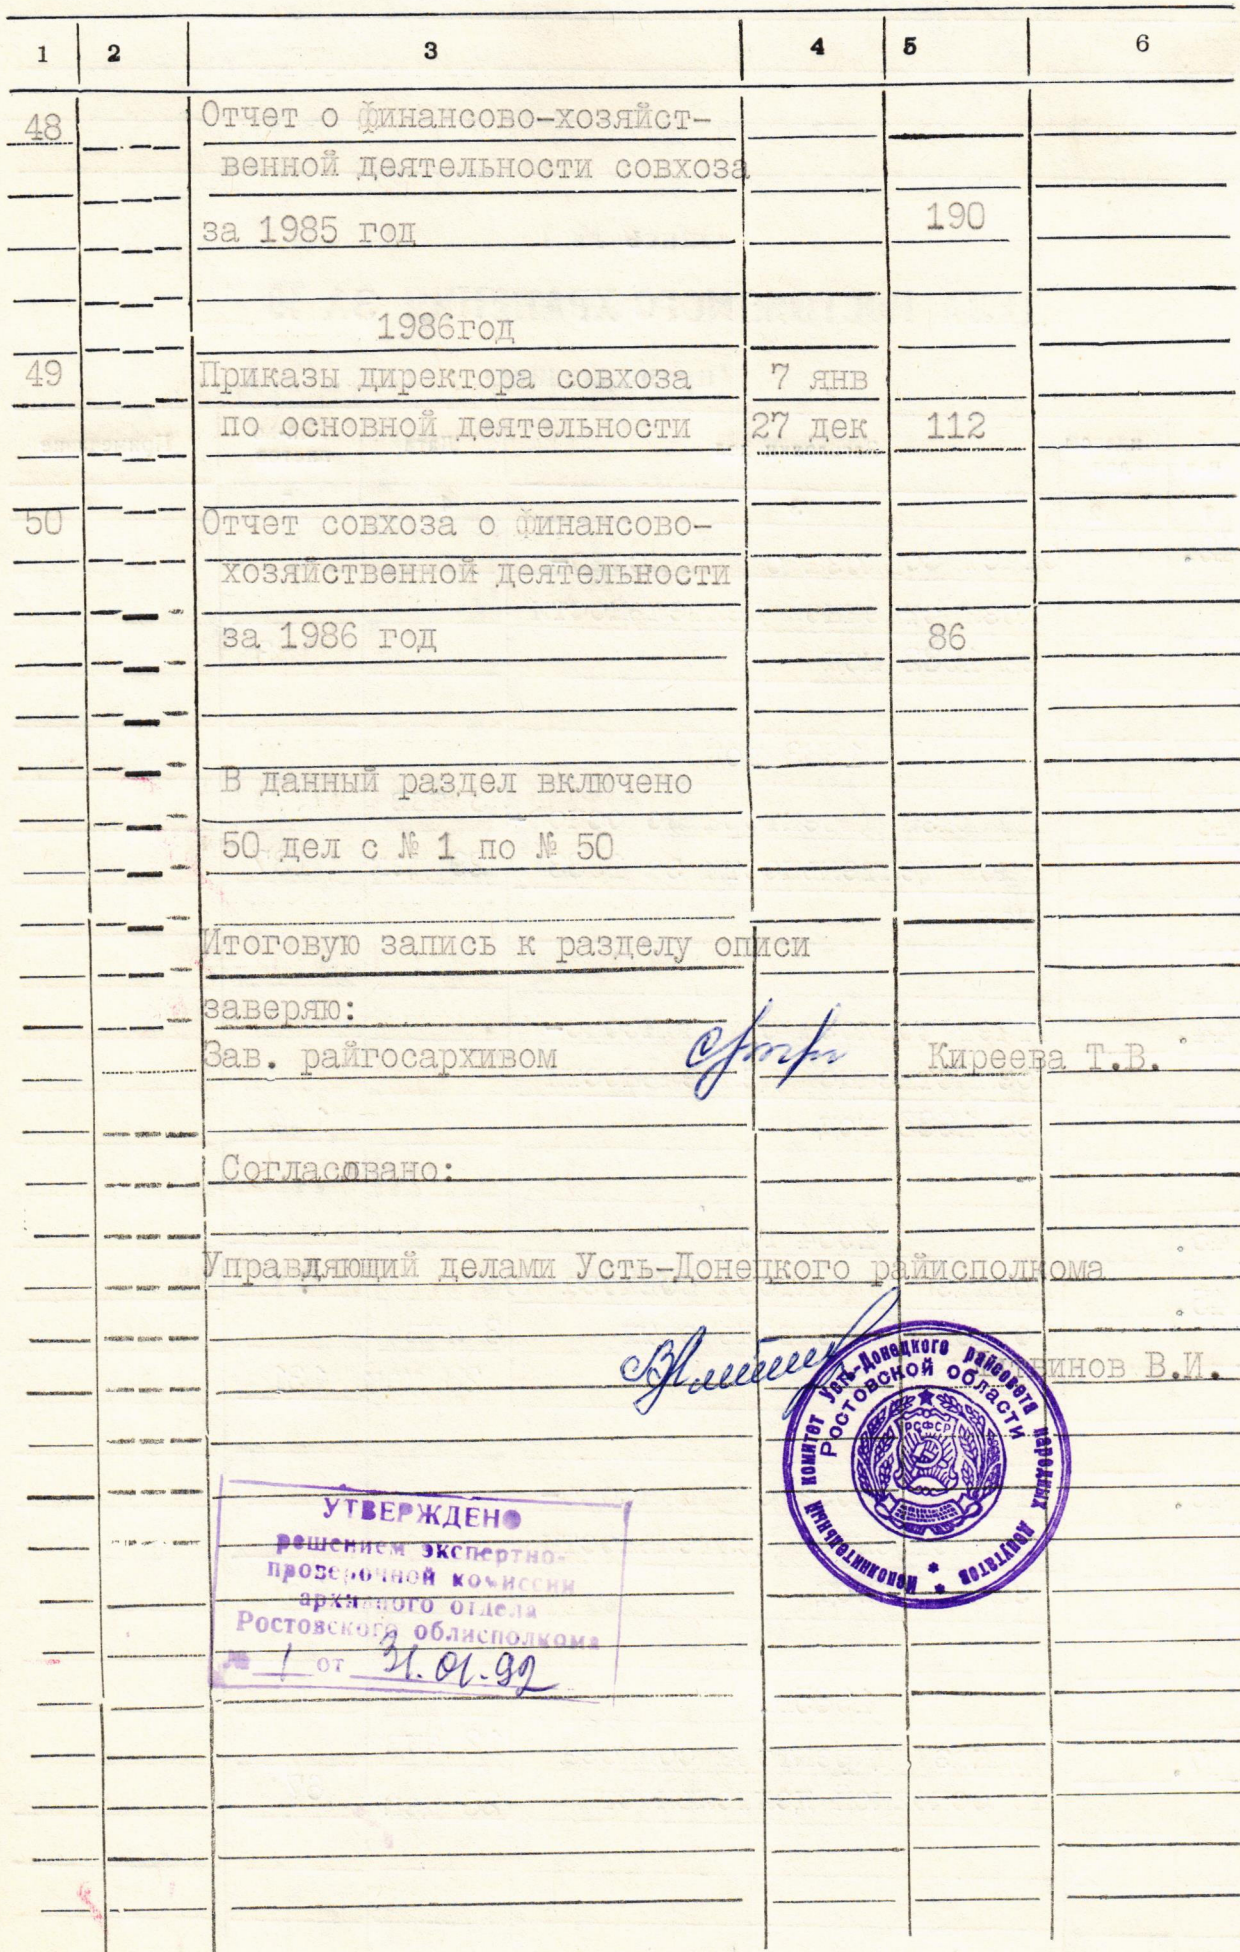 1 2 3 4 5 6
48 Отчет о финансово-хозяйст-
венной деятельности совхоза
за 1985 год 190
1986год
49 Приказы директора совхоза 7 янв
по основной деятельности 27 дек 112
50 Отчет совхоза о финансово-
хозяйственной деятельности
за 1986 год 86
В данный раздел включено
50 дел с № 1 по № 50
Итоговую запись к разделу описи
заверяю:
Зав. райгосархивом Киреева Т.В.
Согласовано:
Управляющий делами Усть-Донецкого райисполкома
Литвинов В.И.
Исполнительный комитет Усть-Донецкого райсовета народных депутатов
Ростовской области
РСФСР
УТВЕРЖДЕНО
решением экспертно-
проверочной комиссии
архивного отдела
Ростовского облисполкома
№ 1 от 31.01.92